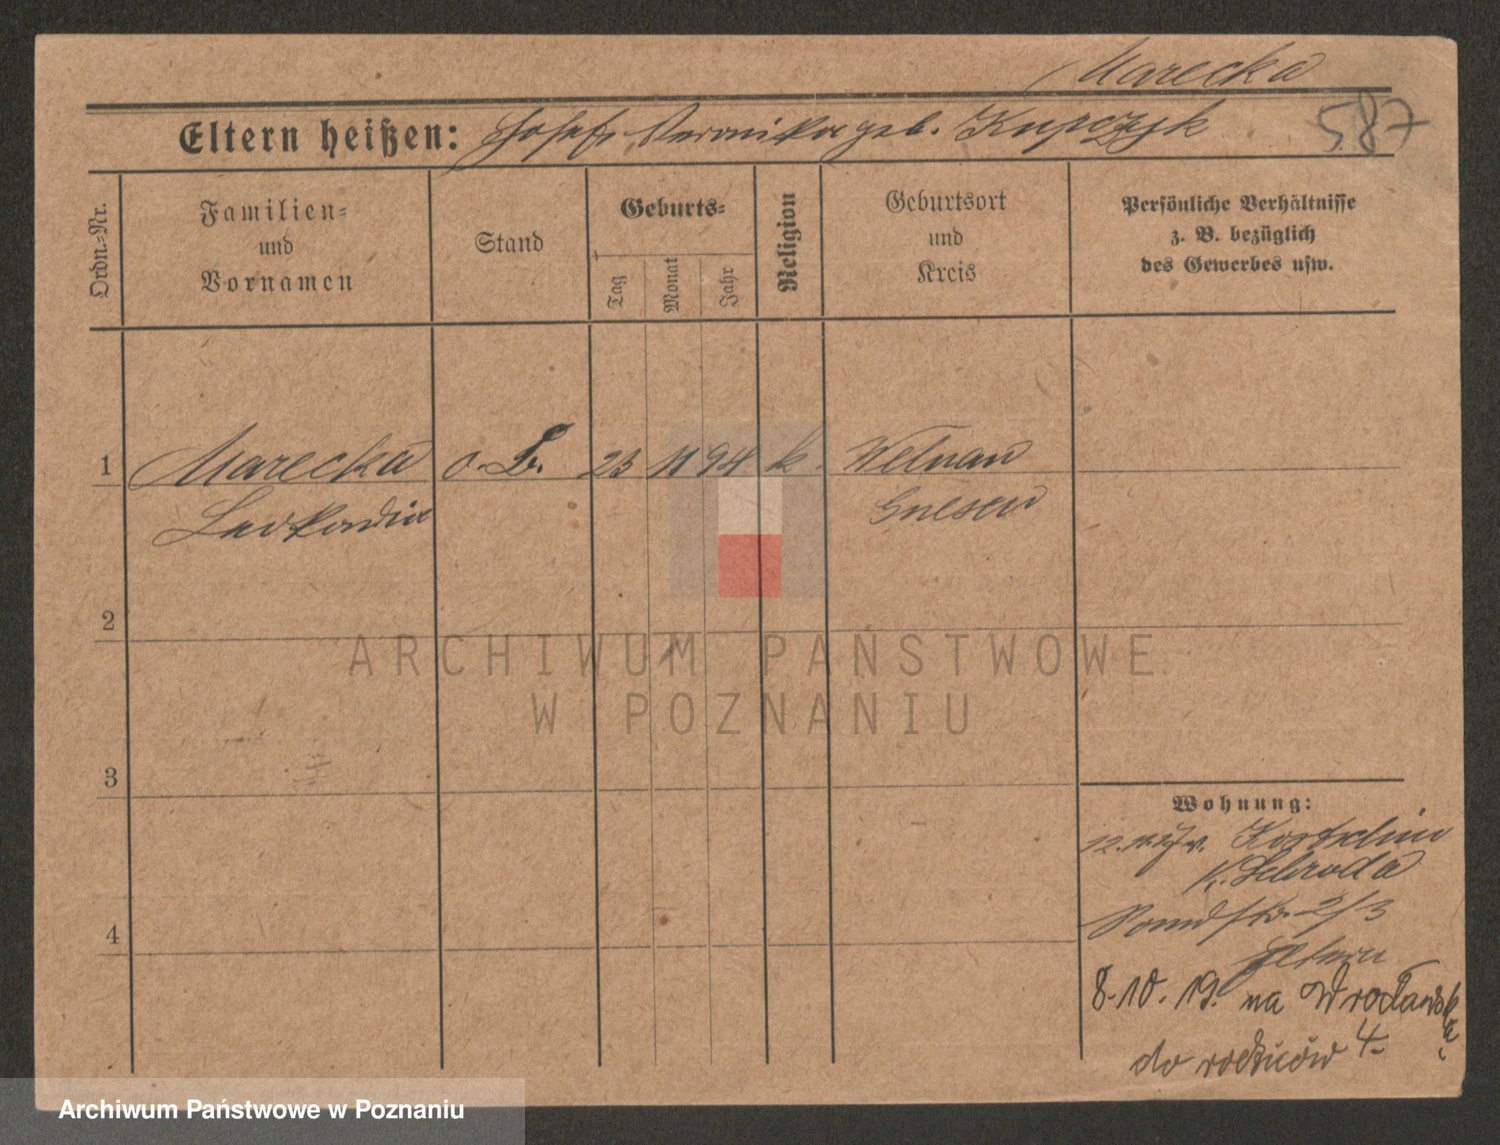 Marecka
Eltern heißen: Josef, Veronika geb. Kupczyk
587
Ordn.-Nr.
Familien- und Vornamen
Stand
Geburts-
Tag
Monat
Jahr
Religion
Geburtsort und Kreis
Persönliche Verhältnisse
z. B. bezüglich
des Gewerbes usw.
1 Marecka o. B. 23 11 94 k. Welnau
Leokardia Gnesen
2
3
4
Wohnung:
K. Schroda
2/3
Eltern
8.10.19. na Wrocławską
do rodziców 4.
ARCHIWUM PAŃSTWOWE
W POZNANIU
Archiwum Państwowe w Poznaniu